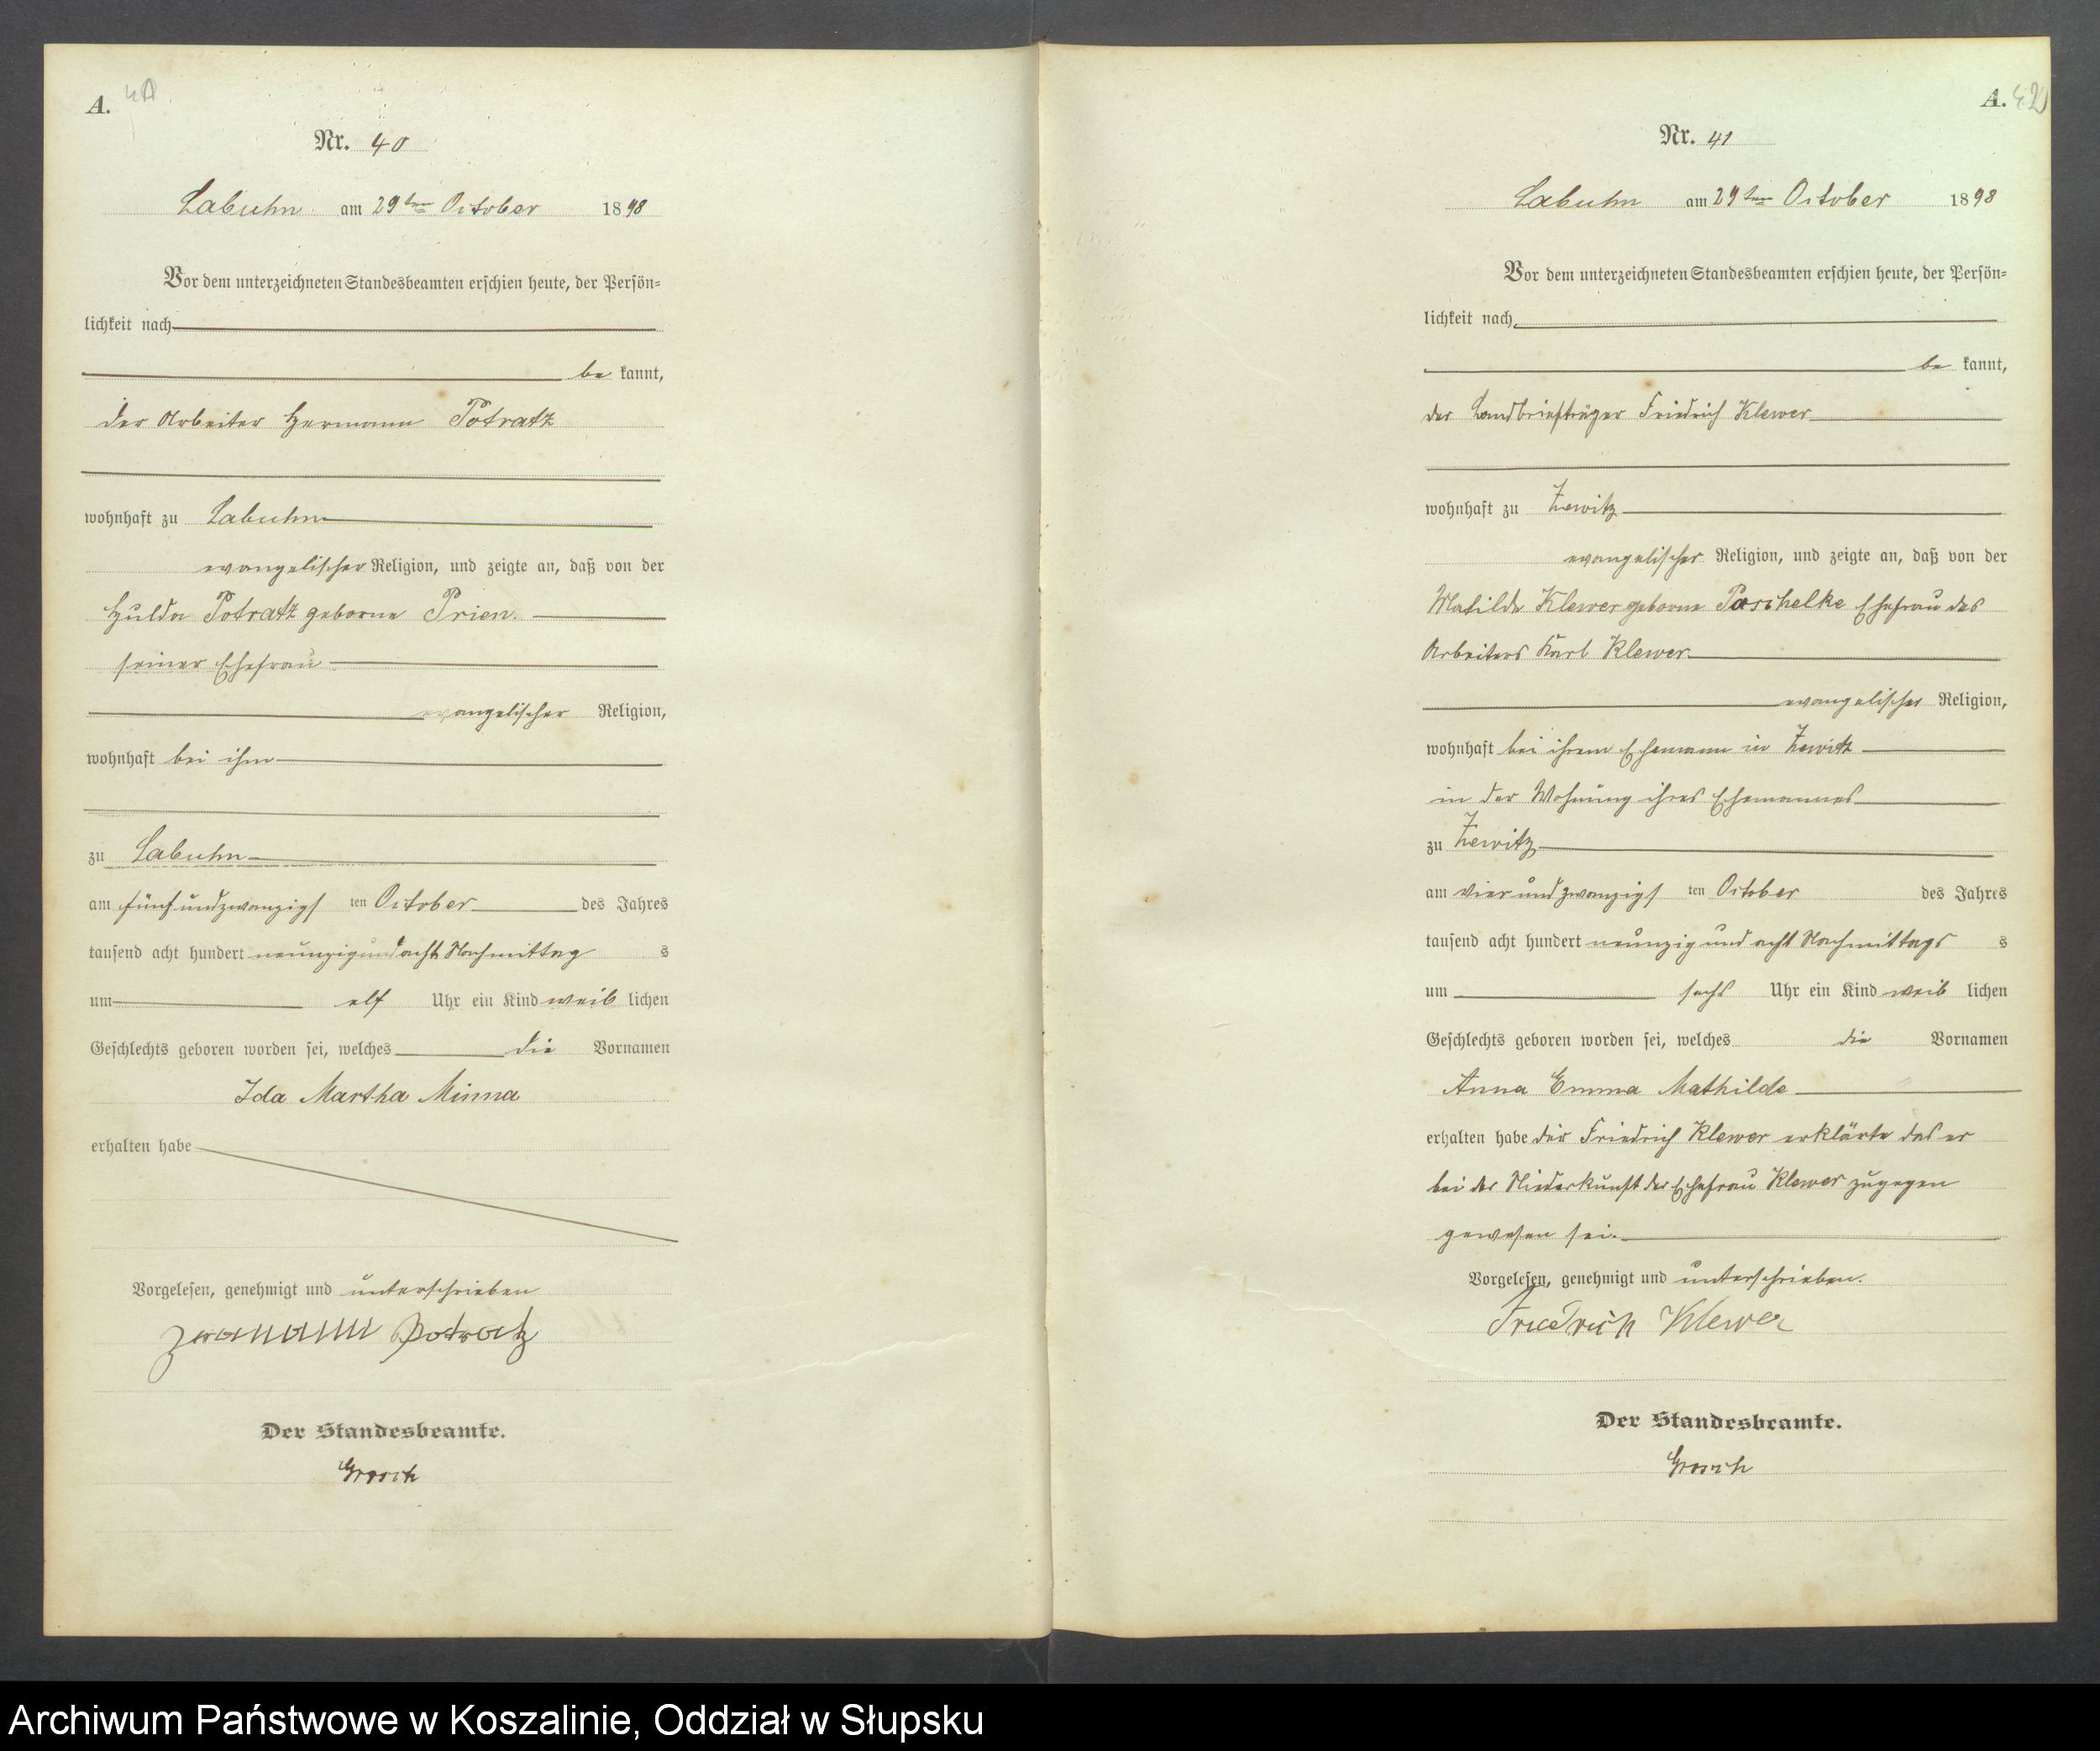 A.
Nr. 40
Labuhn am 29ten October 1898
Vor dem unterzeichneten Standesbeamten erschien heute, der Persön-
lichkeit nach
be kannt,
der Arbeiter Hermann Potratz
wohnhaft zu Labuhn
evangelischer Religion, und zeigte an, daß von der
Hulda Potratz geborne Prien.
seiner Ehefrau
evangelischer Religion,
wohnhaft bei ihm
zu Labuhn
am fünfundzwanzigs ten October des Jahres
tausend acht hundert neunzigundacht Nachmittag s
um elf Uhr ein Kind weib lichen
Geschlechts geboren worden sei, welches die Vornamen
Ida Martha Minna
erhalten habe
Vorgelesen, genehmigt und unterschrieben
Potratz
Der Standesbeamte.
A. 42
Nr. 41
Labuhn am 29ten October 1898
Vor dem unterzeichneten Standesbeamten erschien heute, der Persön-
lichkeit nach
be kannt,
der Landbriefträger Friedrich Klewer
wohnhaft zu Zewitz
evangelischer Religion, und zeigte an, daß von der
Matilde Klewer geborne Paschelke Ehefrau des
Arbeiters Karl Klewer
evangelischer Religion,
wohnhaft bei ihrem Ehemann in Zewitz
in der Wohnung ihres Ehemannes
zu Zewitz
am vierundzwanzigs ten October des Jahres
tausend acht hundert neunzig und acht Nachmittags s
um sechs Uhr ein Kind weib lichen
Geschlechts geboren worden sei, welches die Vornamen
Anna Emma Mathilde
erhalten habe der Friedrich Klewer erklärte das er
bei der Niederkunft der Ehefrau Klewer zugegen
gewesen sei.
Vorgelesen, genehmigt und unterschrieben.
Friedrich Klewer
Der Standesbeamte.
Archiwum Państwowe w Koszalinie, Oddział w Słupsku